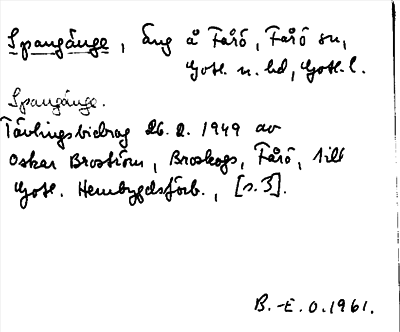 Spangänge, äng å Fårö, Fårö sn,
Gotl. n. hd, Gotl. l.
Spangänge.
Tävlingsbidrag 26.2.1949 av
Oskar Broström, Broskogs, Fårö, till
Gotl. Hembygdsförb., [s.3].
B.-E.O.1961.